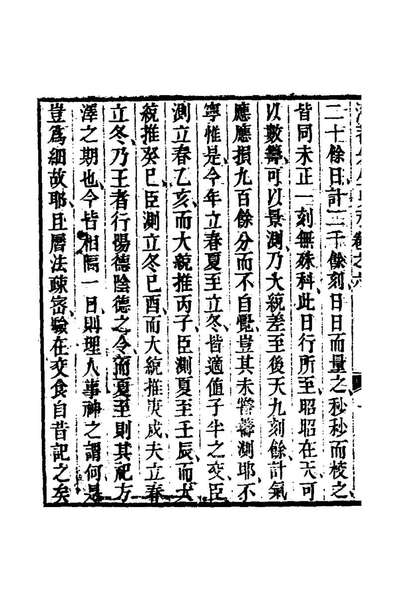 二十餘日計二千餘刻日日而量之秒秒而校之
皆同未正一刻無殊科此日行所至昭昭在天可
以數籌可以景測乃大統差至後天九刻餘計氣
應應損九百餘分而不自覺豈其未嘗籌測耶不
寧惟是今年立春夏至立冬皆適值子半之交臣
測立春乙亥而大統推丙子臣測夏至壬辰而大
統推癸巳臣測立冬己酉而大統推庚戌夫立春
立冬乃王者行揚德陰德之令而夏至則其祀方
澤之期也今皆相隔一日則理人事神之謂何是
豈爲細故耶且曆法疎密驗在交食自昔記之矣